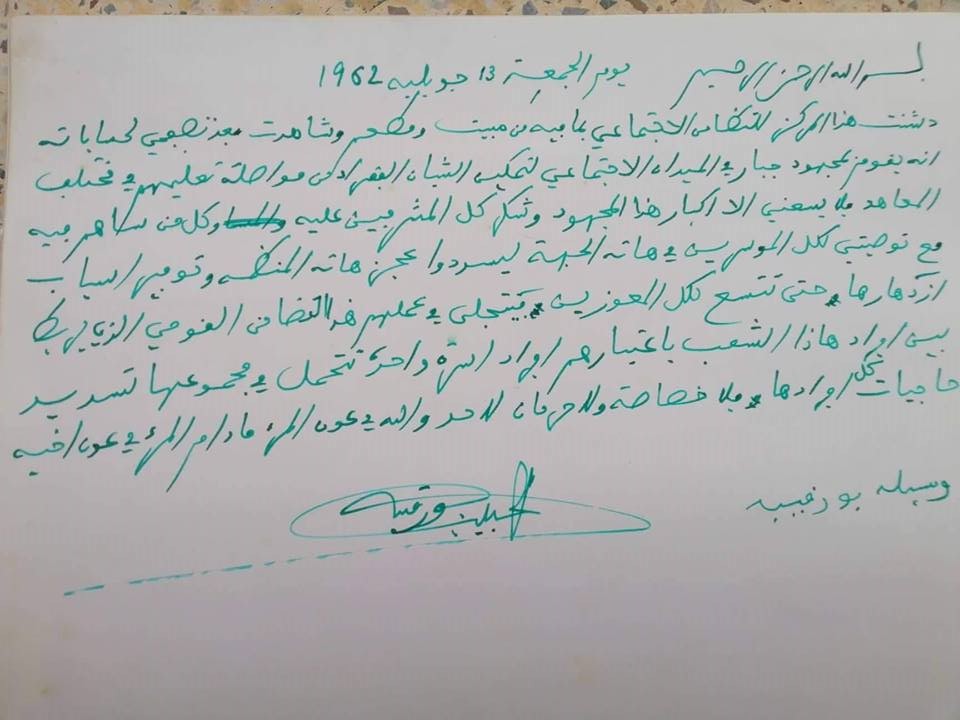 بسم الله الرحمن الرحيم يوم الجمعة 13 جويليه 1962
دشنت هذا المركز للتضامن الاجتماعي بما فيه من مبيت ومطعم وشاهدت بعد تصفحي لحساباته
انه يقوم بمجهود جبار في الميدان الاجتماعي لتمكين الشبان الفقراء من مواصلة تعليمهم في مختلف
المعاهد فلا يسعني الا اكبار هذا المجهود وشكر كل المشرفين عليه وكل من ساهم فيه
مع توصيتي لكل الموسرين في هاته الجهة ليسددوا عجز هاته المنظمة وتوفير اسباب
ازدهارها حتى تتسع لكل المعوزين فيتجلى في عملهم هذا التضامن القومي الذي يربط
بين افراد هاذا الشعب باعتبارهم افراد اسرة واحدة تتحمل في مجموعها تسديد
حاجيات كل افرادها فلا خصاصة ولا حرمان لاحد والله في عون المرء مادام المرء في عون اخيه
وسيلة بورقيبة
الحبيب بورقيبة